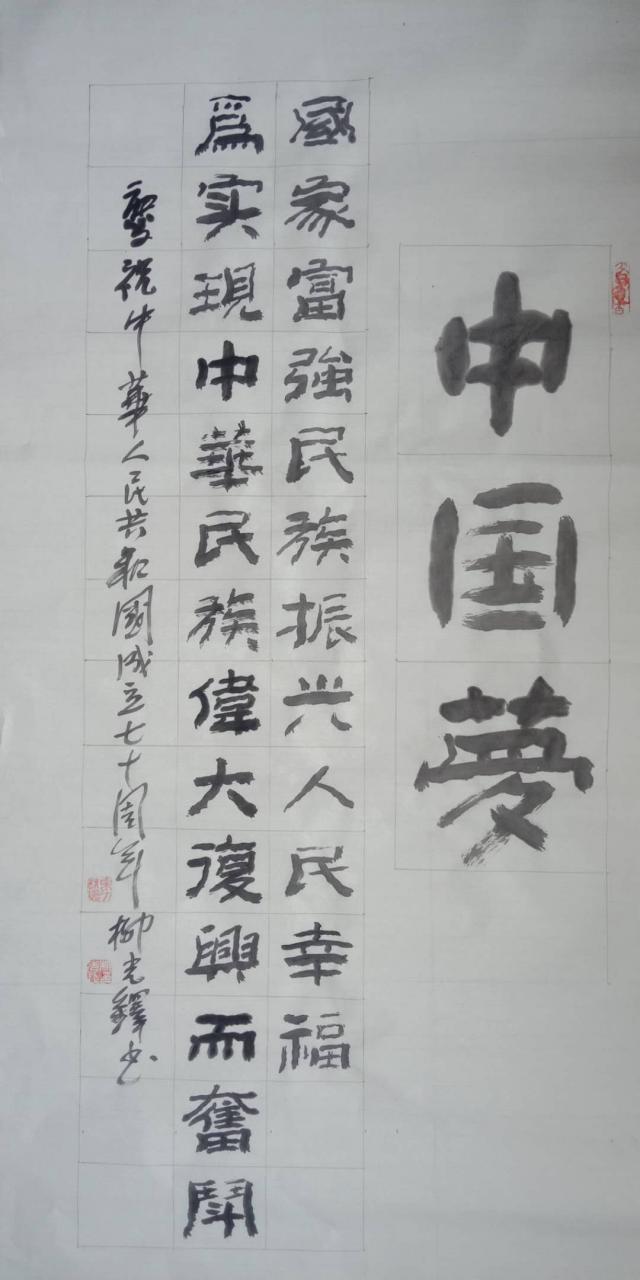 中国夢
國家富強民族振兴人民幸福
爲实現中華民族偉大復興而奮鬭
慶祝中華人民共和國成立七十周年 柳光鐸书